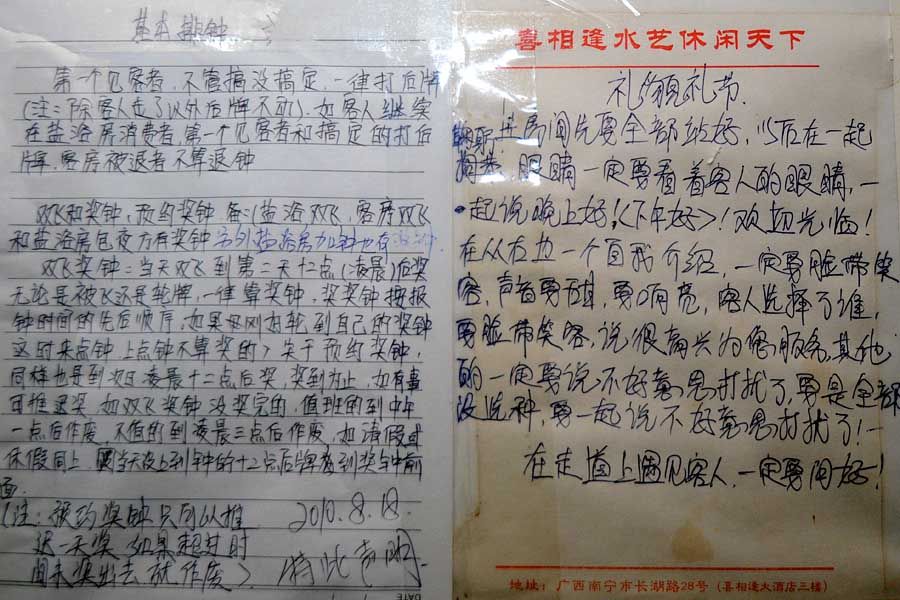 基本排钟
第一个见客者,不管搞没搞定,一律打后牌
(注:除客人走了以外后牌不动).如客人继续
在盐浴房消费者,第一个见客者和搞定的打后
牌.客房被退者不算退钟
双飞和奖钟,预约奖钟.备:(盐浴双飞,客房双飞
和盐浴房包夜方有奖钟 另外盐浴房加钟也有
双飞奖钟:当天双飞到第二天十二点(凌晨)后奖
无论是被飞还是轮牌,一律算奖钟,奖奖钟按报
钟时间的先后顺序,如果刚刚轮到自己的奖钟
这时来点钟,上点钟不算奖的>关于预约奖钟,
同样也是到次日凌晨十二点后奖,奖到为止,如有
可推退奖,如双飞奖钟没奖完的,值班的到中午
一点后作废,不值的到凌晨三点后作废,如请假或
休假同上 当天没上到钟的十二点后牌到奖钟前
面.
(注:预约奖钟只可以推 2010.8.18.
迟一天奖 如果超过时
间未奖出去就作废> 特此声明
喜相逢水艺休闲天下
礼貌礼节.
进房间先要全部站好,以后在一起
鞠恭,眼睛一定要看着客人的眼睛,一
起说晚上好!<下午好>!欢迎光临!
在从左边一个自我介绍,一定要脸带笑
容,声音要甜,要响亮,客人选择了谁,
要脸带笑容,说很高兴为您服务,其他
的一定要说不好意思打扰了,要是全部
没选种,要一起说不好意思打扰了!一
在走道上遇见客人,一定要问好!
地址:广西南宁市长湖路28号(喜相逢大酒店三楼)